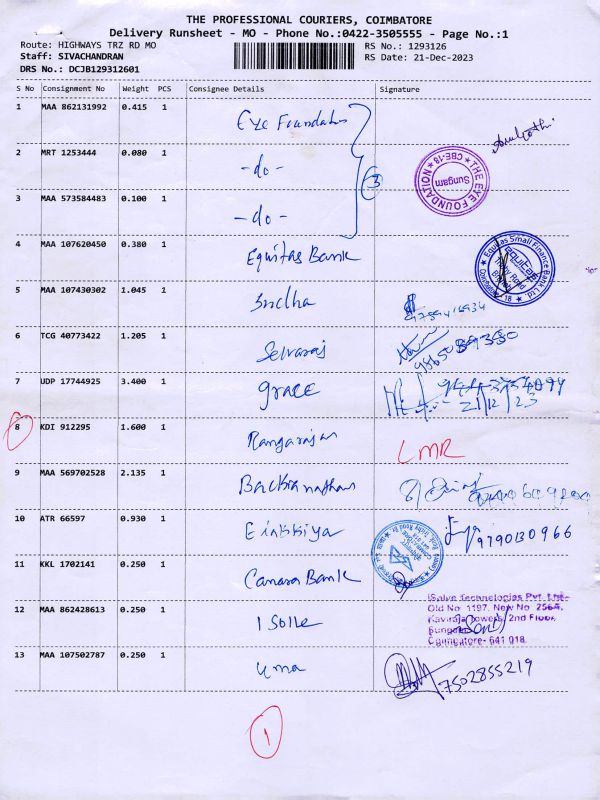 THE PROFESSIONAL COURIERS, COIMBATORE
Delivery Runsheet - MO - Phone No.:0422-3505555 - Page No.:1
Route: HIGHWAYS TRZ RD MO
RS No.: 1293126
Staff: SIVACHANDRAN
RS Date: 21-Dec-2023
DRS No.: DCJB129312601
S No Consignment No Weight PCS Consignee Details Signature
1 MAA 862131992 0.415 1 Eye Foundation
2 MRT 1253444 0.080 1 -do- 3
THE EYE FOUNDATION CBE-18 Sungam
3 MAA 573584483 0.100 1 -do-
4 MAA 107620450 0.380 1 Equitas Bank
Equitas Small Finance Bank Ltd.
5 MAA 107430302 1.045 1 Sudha
6 TCG 40773422 1.205 1 Selvaraj
7 UDP 17744925 3.400 1 grace
21/12/23
8 KDI 912295 1.600 1 Rangarajan LMR
9 MAA 569702528 2.135 1
10 ATR 66597 0.930 1 9790130966
11 KKL 1702141 0.250 1 Canara Bank
12 MAA 862428613 0.250 1 I Solve
iSolve Technologies Pvt. Ltd.
Old No 1197, New No 2564,
Kaviraja Towers, 2nd Floor,
Sungam
Coimbatore- 641 018
13 MAA 107502787 0.250 1 Uma 7502855219
1